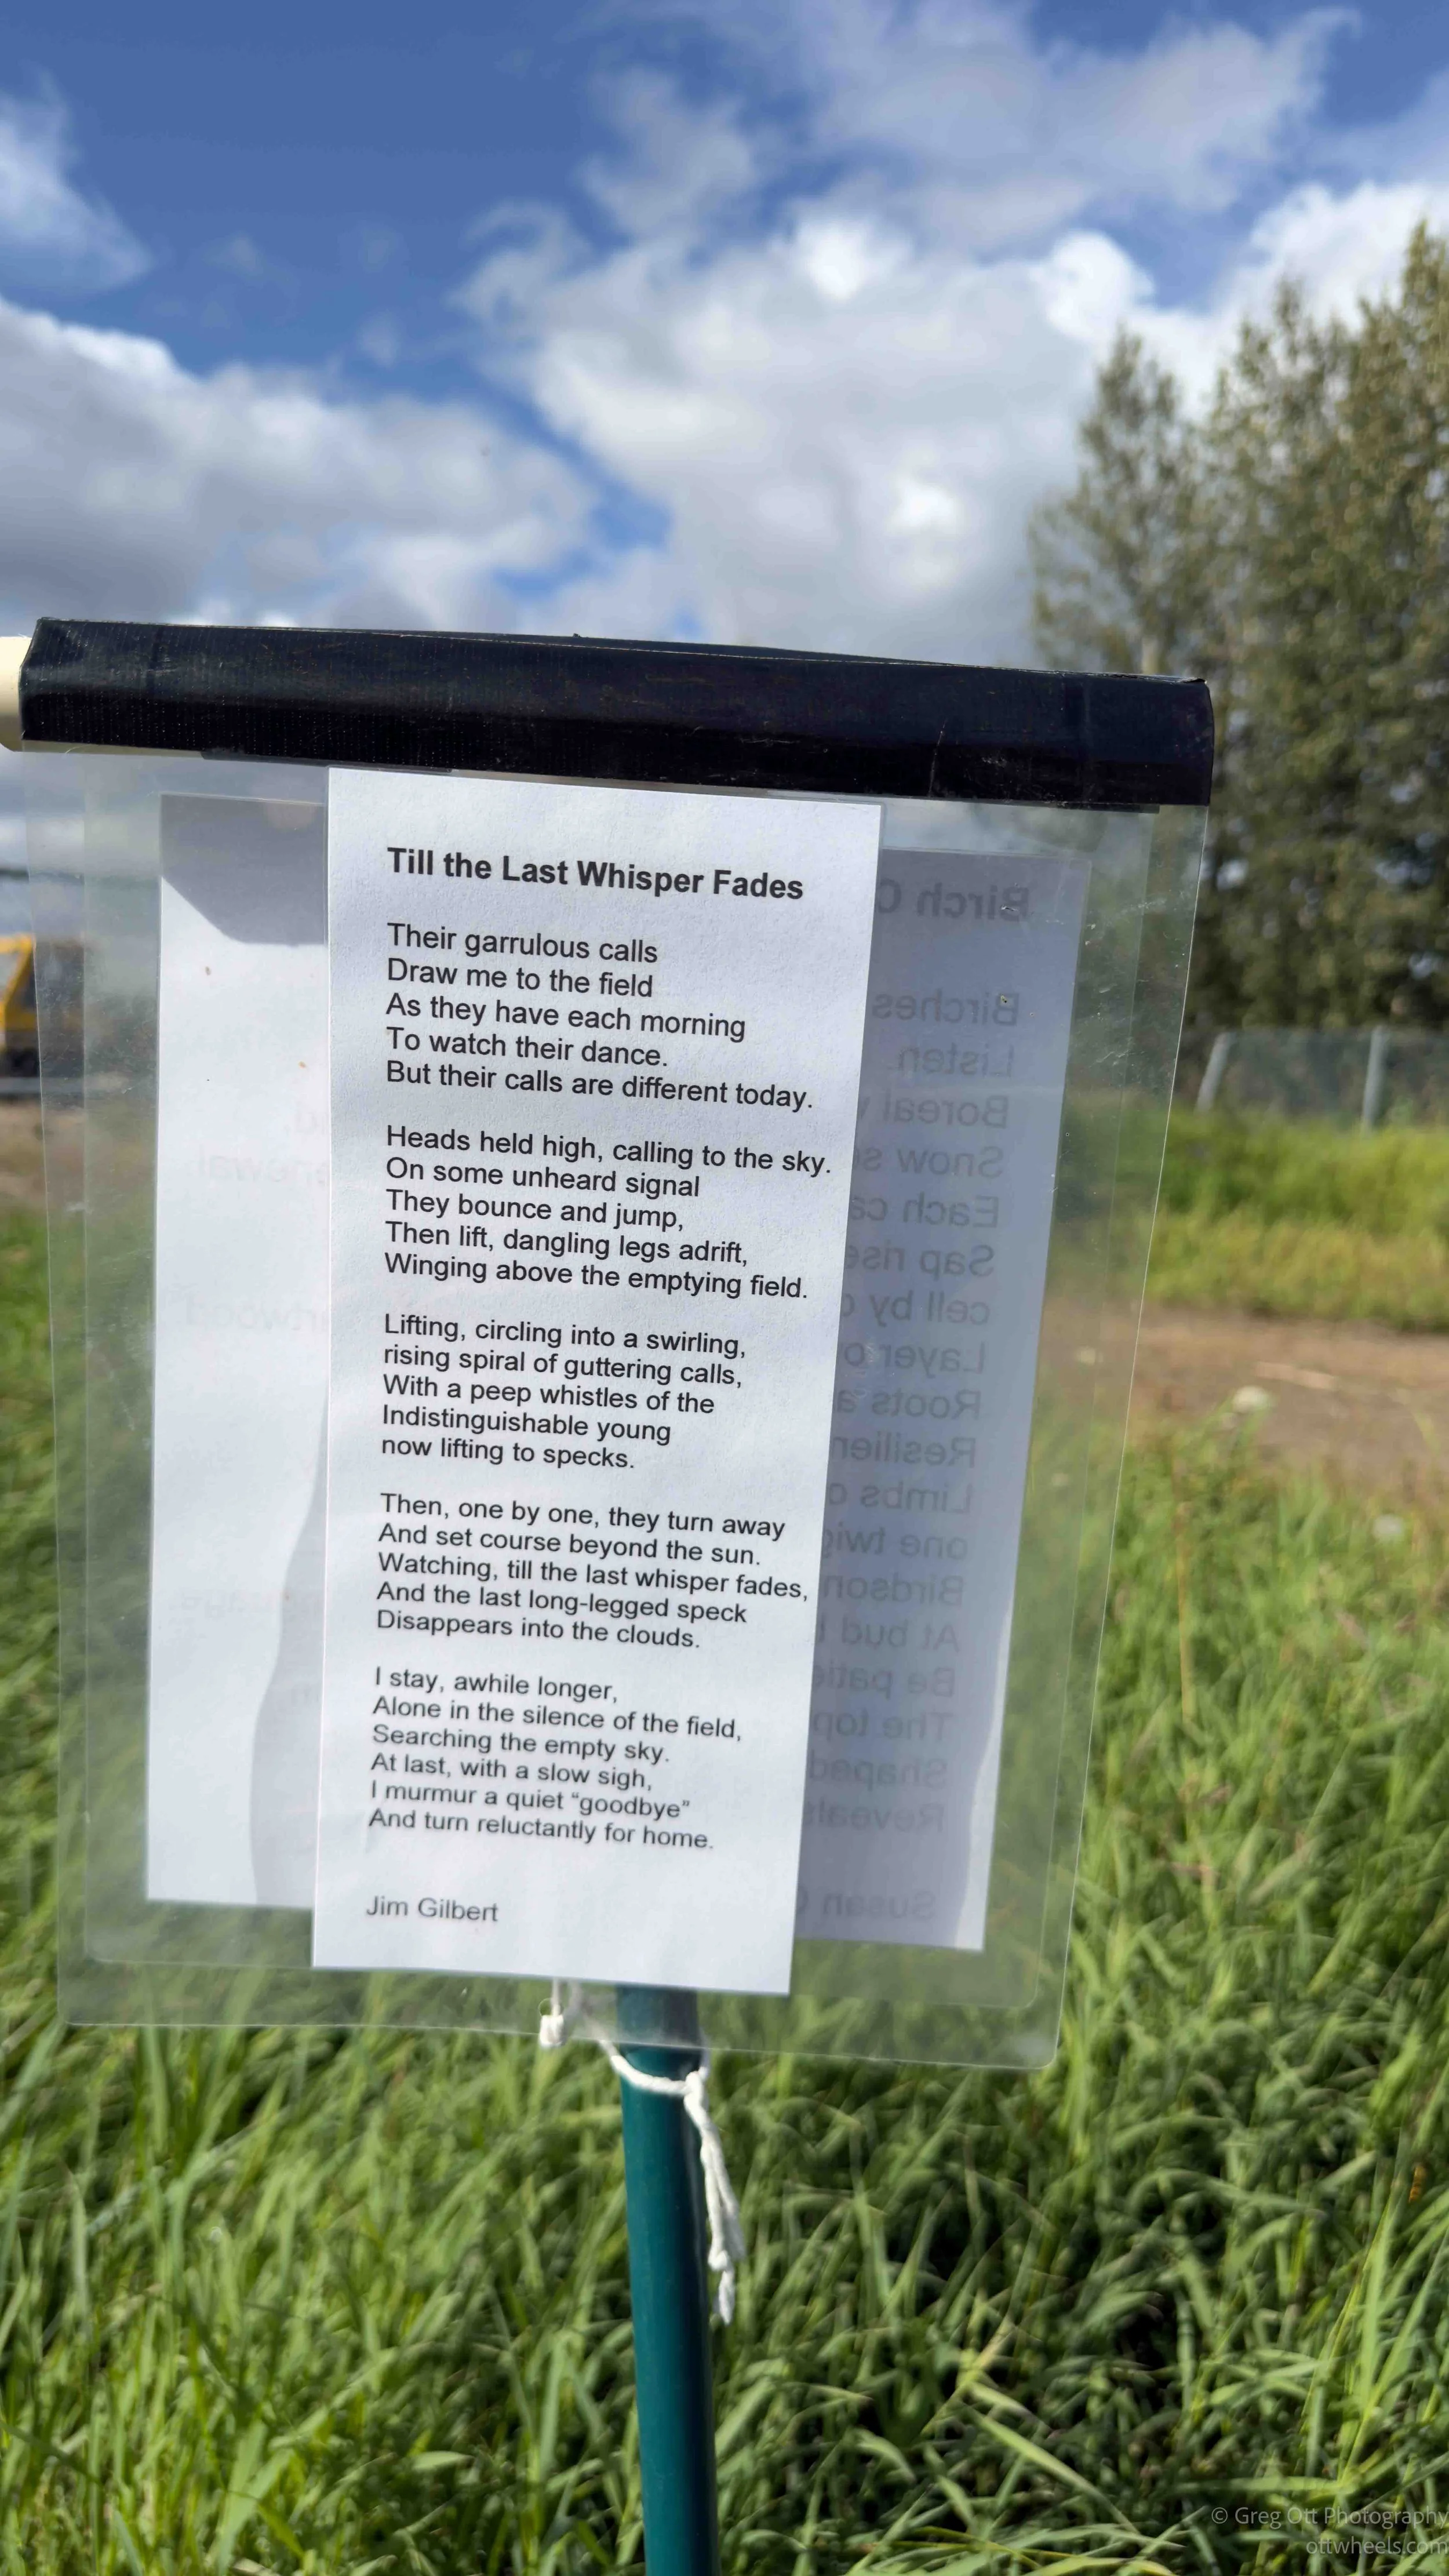 Till the Last Whisper Fades
Their garrulous calls
Draw me to the field
As they have each morning
To watch their dance.
But their calls are different today.
Heads held high, calling to the sky.
On some unheard signal
They bounce and jump,
Then lift, dangling legs adrift,
Winging above the emptying field.
Lifting, circling into a swirling,
rising spiral of guttering calls,
With a peep whistles of the
Indistinguishable young
now lifting to specks.
Then, one by one, they turn away
And set course beyond the sun.
Watching, till the last whisper fades,
And the last long-legged speck
Disappears into the clouds.
I stay, awhile longer,
Alone in the silence of the field,
Searching the empty sky.
At last, with a slow sigh,
I murmur a quiet “goodbye”
And turn reluctantly for home.
Jim Gilbert
Birch
Birches
Listen
Boreal
Snow
Each
Sap
cell by
Layer
Roots
Limbs
one
At bud
Be
The
Shaped
Susan
© Greg Ott Photography
ottwheels.com